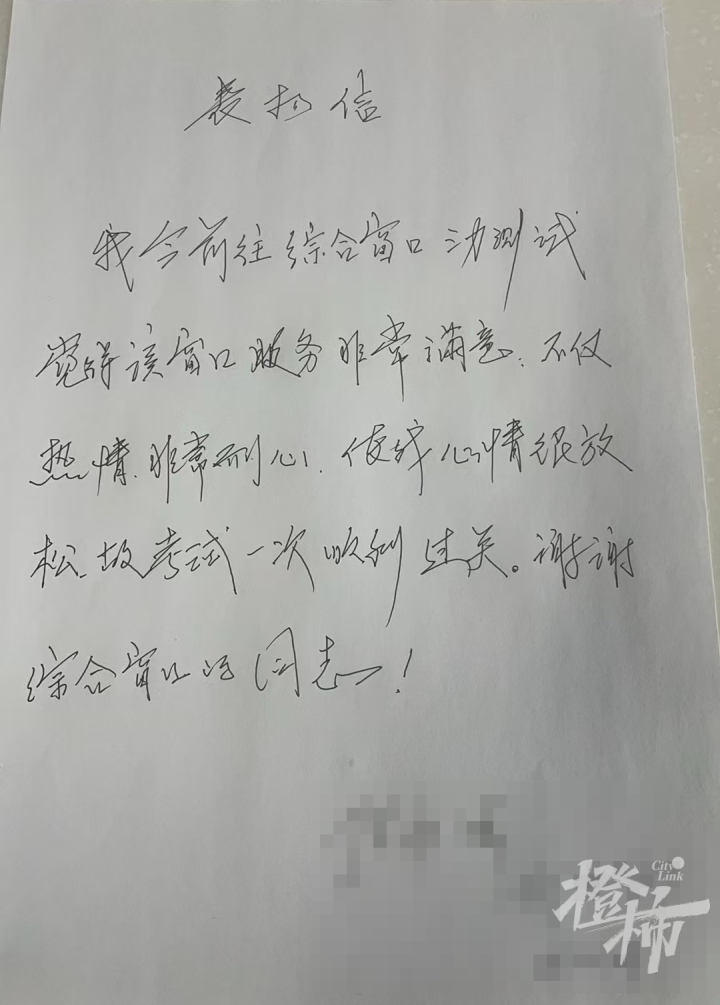 表扬信
我今前往综合窗口三力测试
觉得该窗口服务非常满意.不仅
热情.非常耐心.使我心情很放
松.故考试一次顺利过关。谢谢
综合窗口的同志!
City Link
橙柿